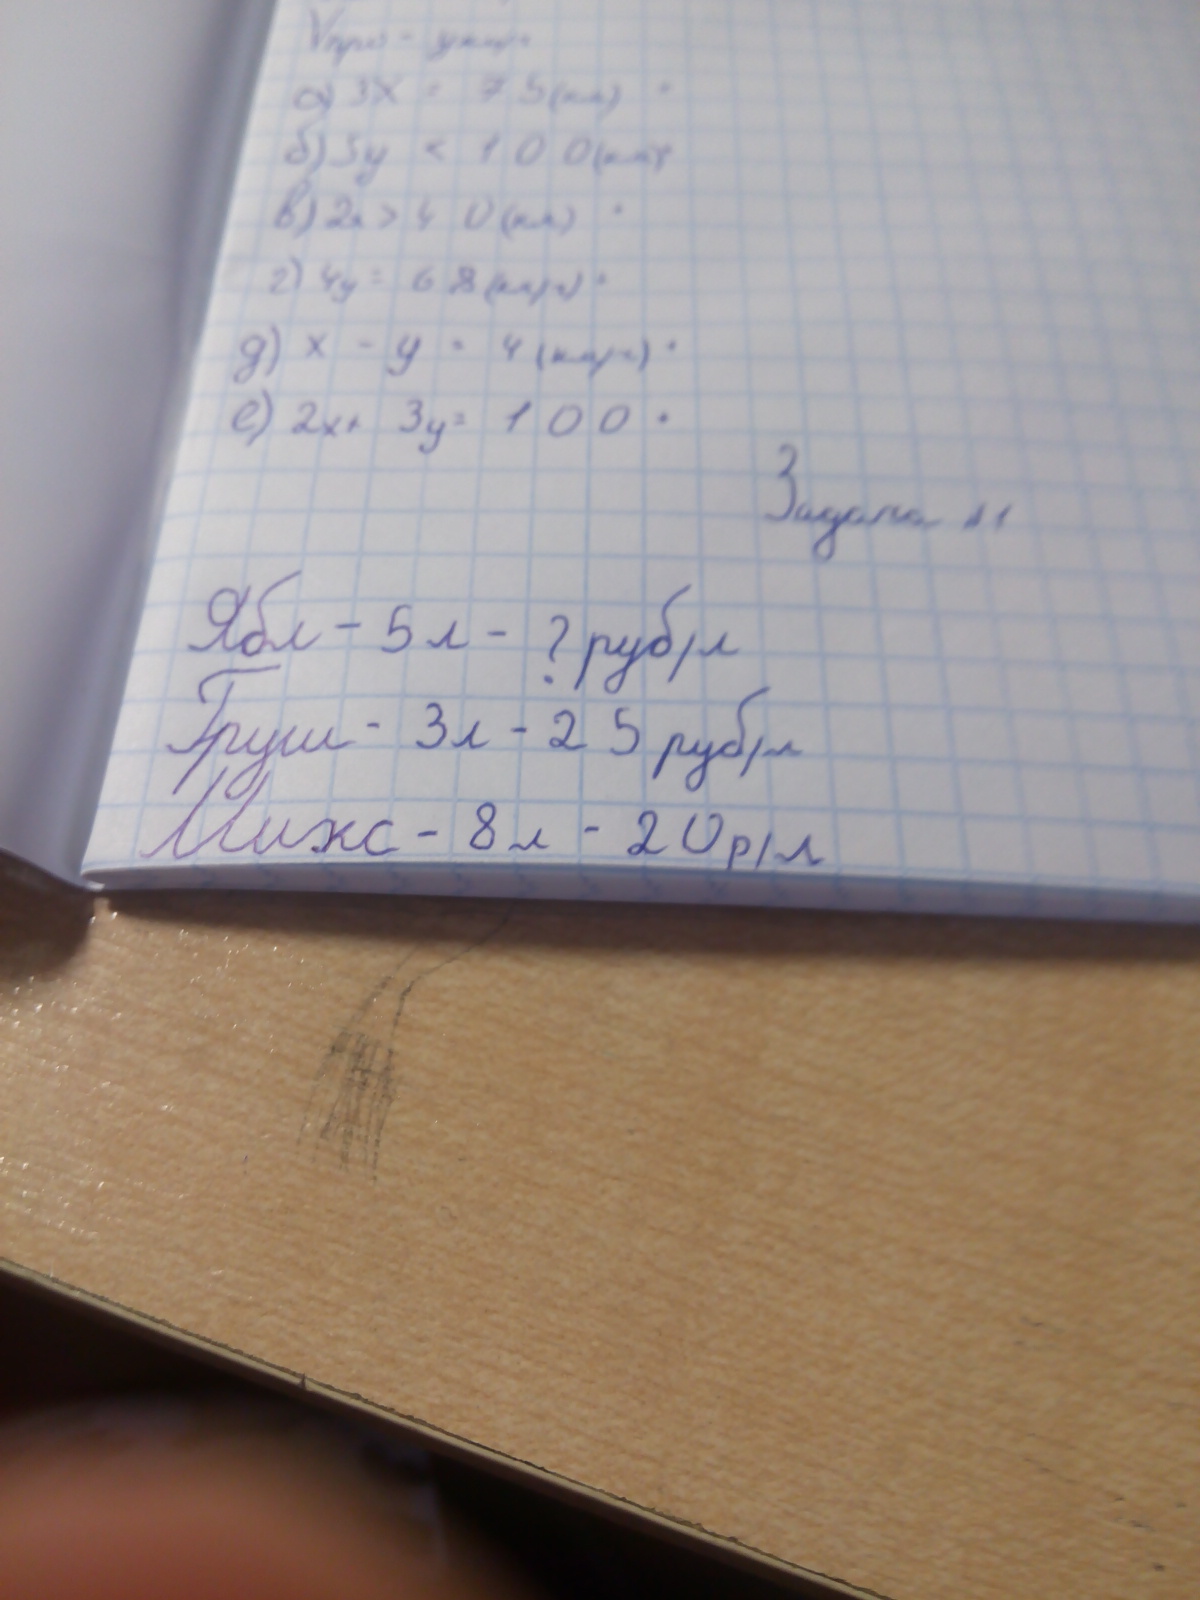 а) 3x = 75 (км)
б) 3y < 100 (км)
в) 2x > 40 (км)
г) 4y = 68 (км/ч)
д) x - y = 4 (км/ч)
е) 2x + 3y = 100
Задача №1
Ябл - 5л - ? руб/л
Груш - 3л - 25 руб/л
Микс - 8л - 20р/л